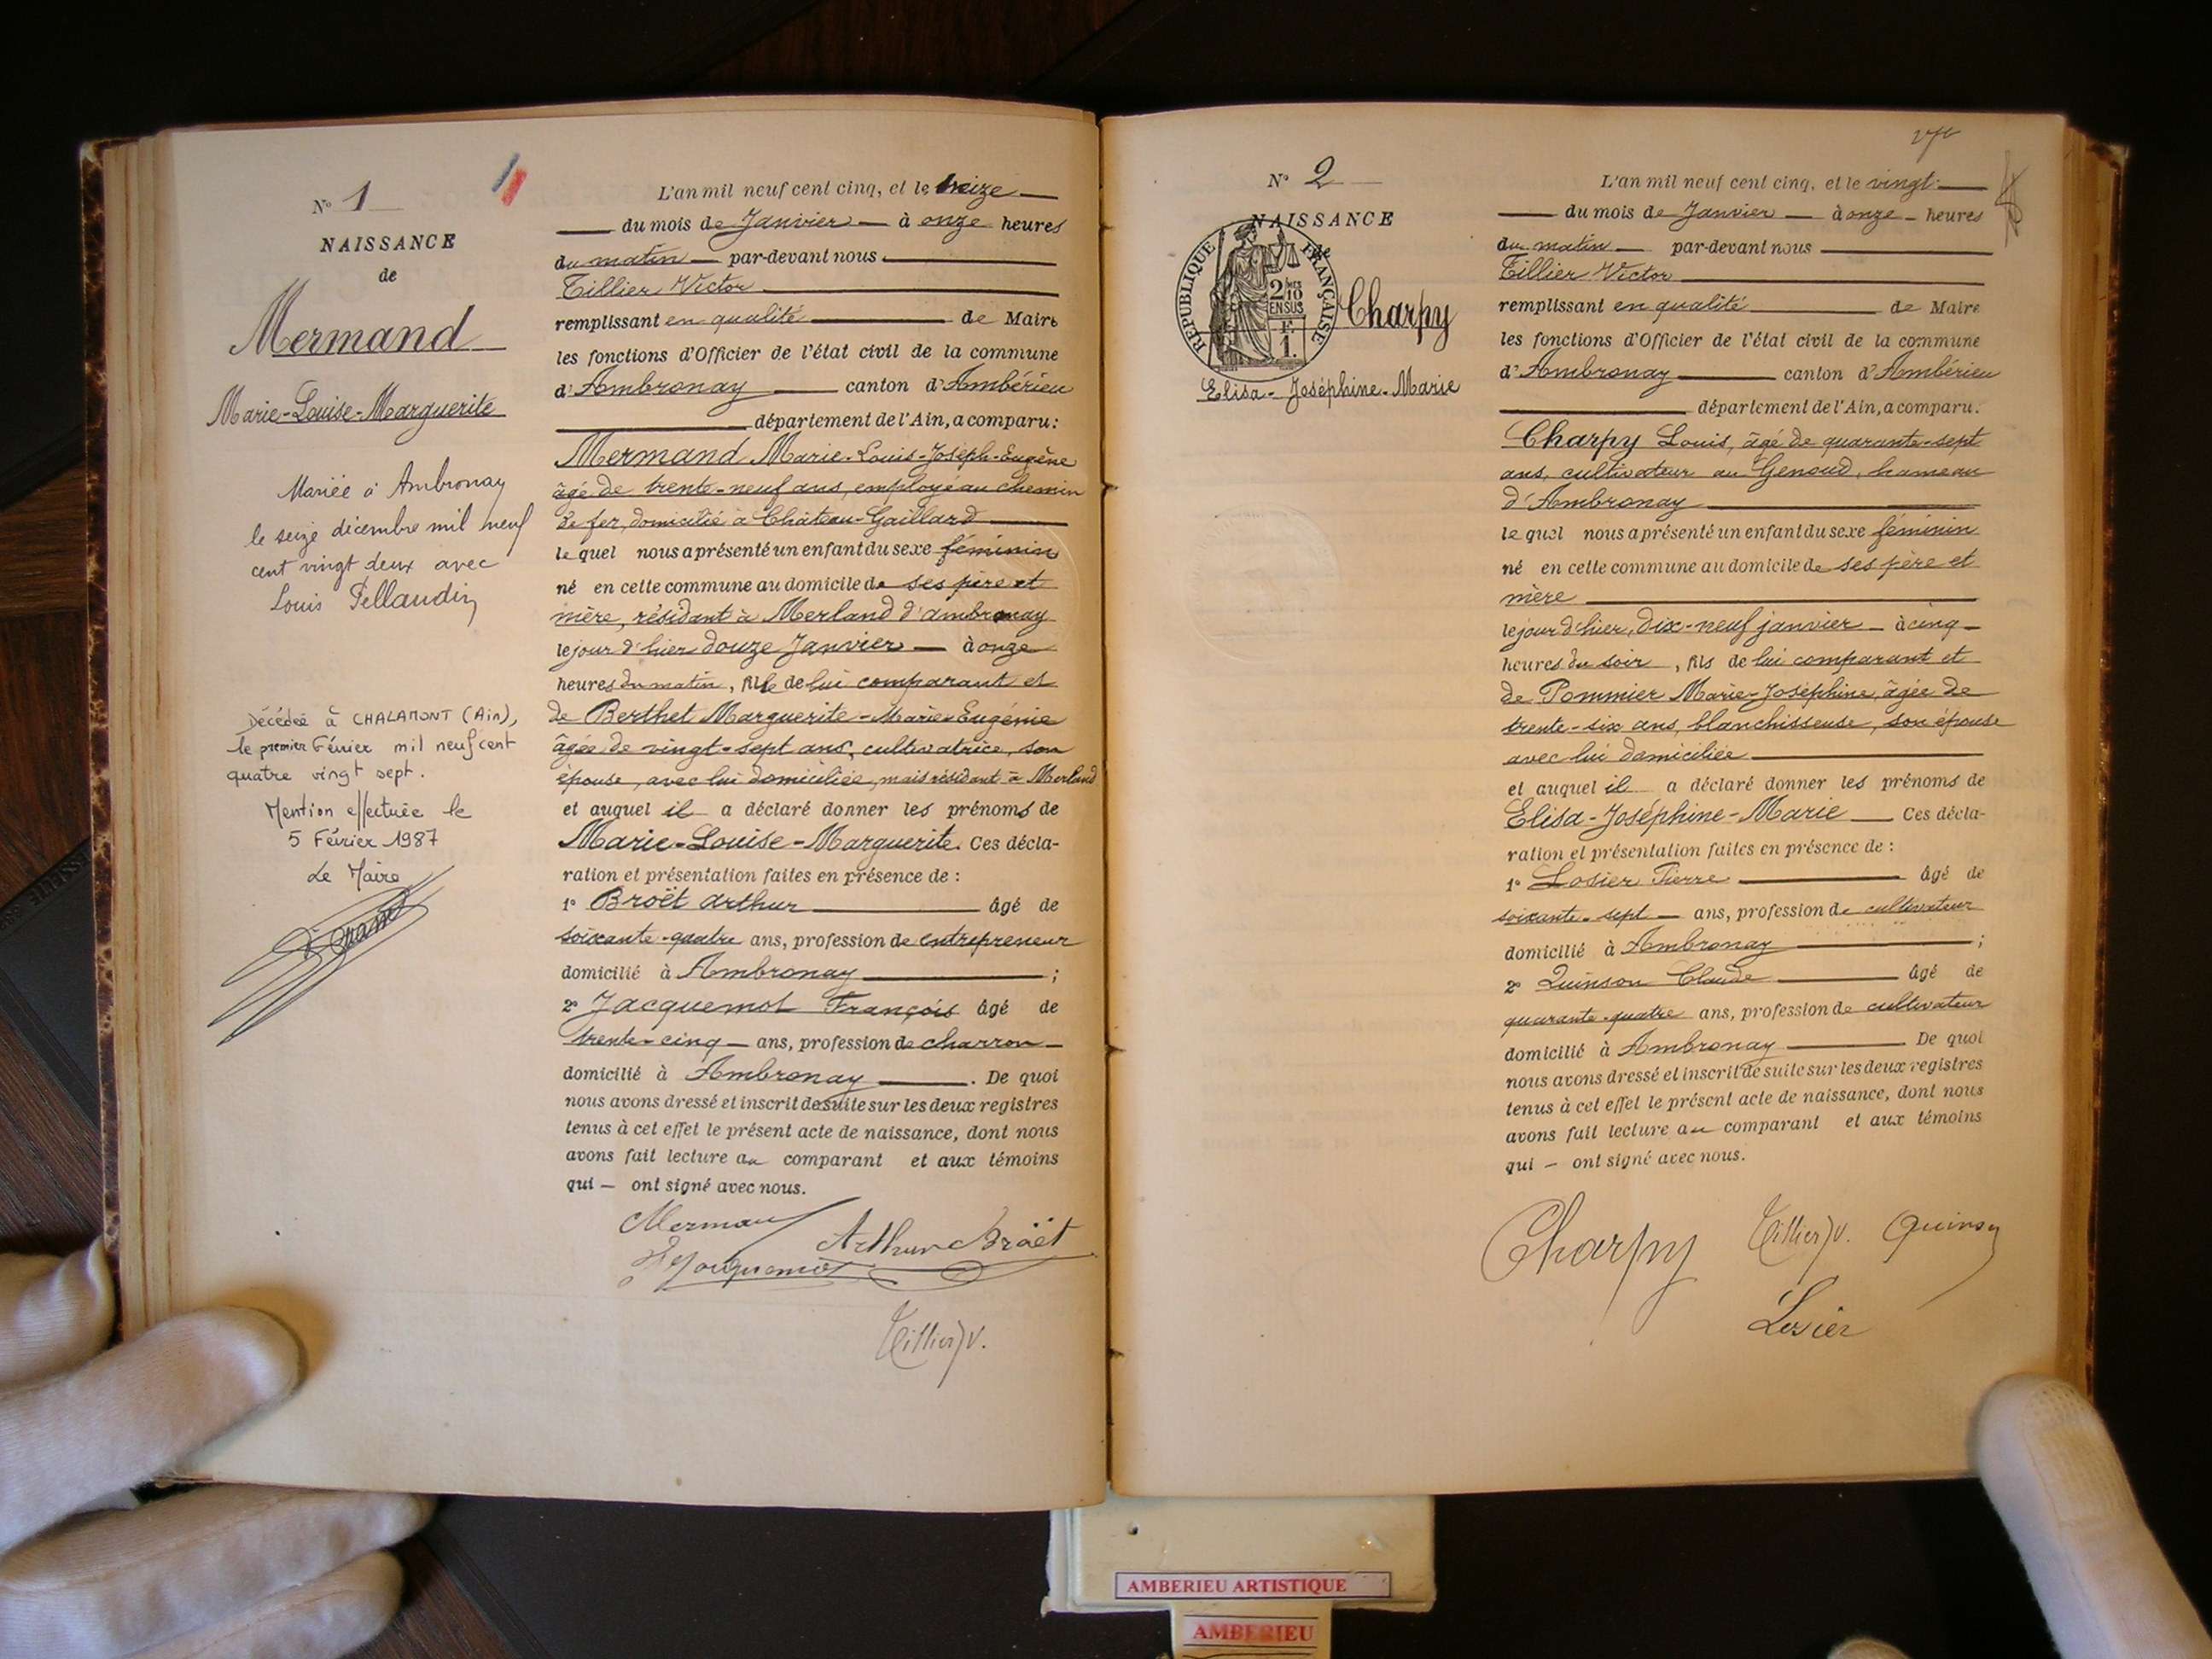 N° 1
NAISSANCE
de
Mermand
Marie-Louise-Marguerite
Mariée à Ambronay
le seize décembre mil neuf
cent vingt deux avec
Louis Pellaudin
Décédée à CHALAMONT (Ain),
le premier Février mil neuf cent
quatre vingt sept.
Mention effectuée le
5 Février 1987
Le Maire
L'an mil neuf cent cinq, et le treize
du mois de Janvier à onze heures
du matin par-devant nous
Tillier Victor
remplissant en qualité de Maire
les fonctions d'Officier de l'état civil de la commune
d'Ambronay canton d'Ambérieu
département de l'Ain, a comparu:
Mermand Marie-Louis-Joseph-Eugène
âgé de trente-neuf ans, employé au chemin
de fer, domicilié à Château-Gaillard
le quel nous a présenté un enfant du sexe féminin
né en cette commune au domicile de ses père et
mère, résidant à Merland d'ambronay
le jour d'hier douze Janvier à onze
heures du matin, fille de lui comparant et
de Berthet Marguerite-Marie-Eugénie
âgée de vingt-sept ans, cultivatrice, son
épouse, avec lui domiciliée, mais résidant à Merland
et auquel il a déclaré donner les prénoms de
Marie-Louise-Marguerite. Ces décla-
ration et présentation faites en présence de :
1° Broët Arthur âgé de
soixante-quatre ans, profession de entrepreneur
domicilié à Ambronay ;
2° Jacquemot François âgé de
trente-cinq ans, profession de charron
domicilié à Ambronay. De quoi
nous avons dressé et inscrit de suite sur les deux registres
tenus à cet effet le présent acte de naissance, dont nous
avons fait lecture au comparant et aux témoins
qui — ont signé avec nous.
Mermand
Arthur Broët
F Jacquemot
Tillier V.
N° 2
NAISSANCE
de
REPUBLIQUE FRANÇAISE
2/10
EN SUS
F.
1.
Charpy
Elisa-Joséphine-Marie
L'an mil neuf cent cinq, et le vingt
du mois de Janvier — à onze heures
du matin par-devant nous
Tillier Victor
remplissant en qualité de Maire
les fonctions d'Officier de l'état civil de la commune
d'Ambronay canton d'Ambérieu
département de l'Ain, a comparu:
Charpy Louis, âgé de quarante-sept
ans, cultivateur au Genoud, hameau
d'Ambronay
le quel nous a présenté un enfant du sexe féminin
né en cette commune au domicile de ses père et
mère
le jour d'hier, dix-neuf janvier — à cinq
heures du soir, fils de lui comparant et
de Pommier Marie-Joséphine, âgée de
trente-six ans, blanchisseuse, son épouse
avec lui domiciliée
et auquel il a déclaré donner les prénoms de
Elisa-Joséphine-Marie Ces décla-
ration et présentation faites en présence de :
1° Losier Pierre âgé de
soixante-sept ans, profession de cultivateur
domicilié à Ambronay ;
2° Quinson Claude âgé de
quarante-quatre ans, profession de cultivateur
domicilié à Ambronay De quoi
nous avons dressé et inscrit de suite sur les deux registres
tenus à cet effet le présent acte de naissance, dont nous
avons fait lecture au comparant et aux témoins
qui — ont signé avec nous.
Charpy Tillier V. Quinson
Losier
AMBERIEU ARTISTIQUE
AMBERIEU